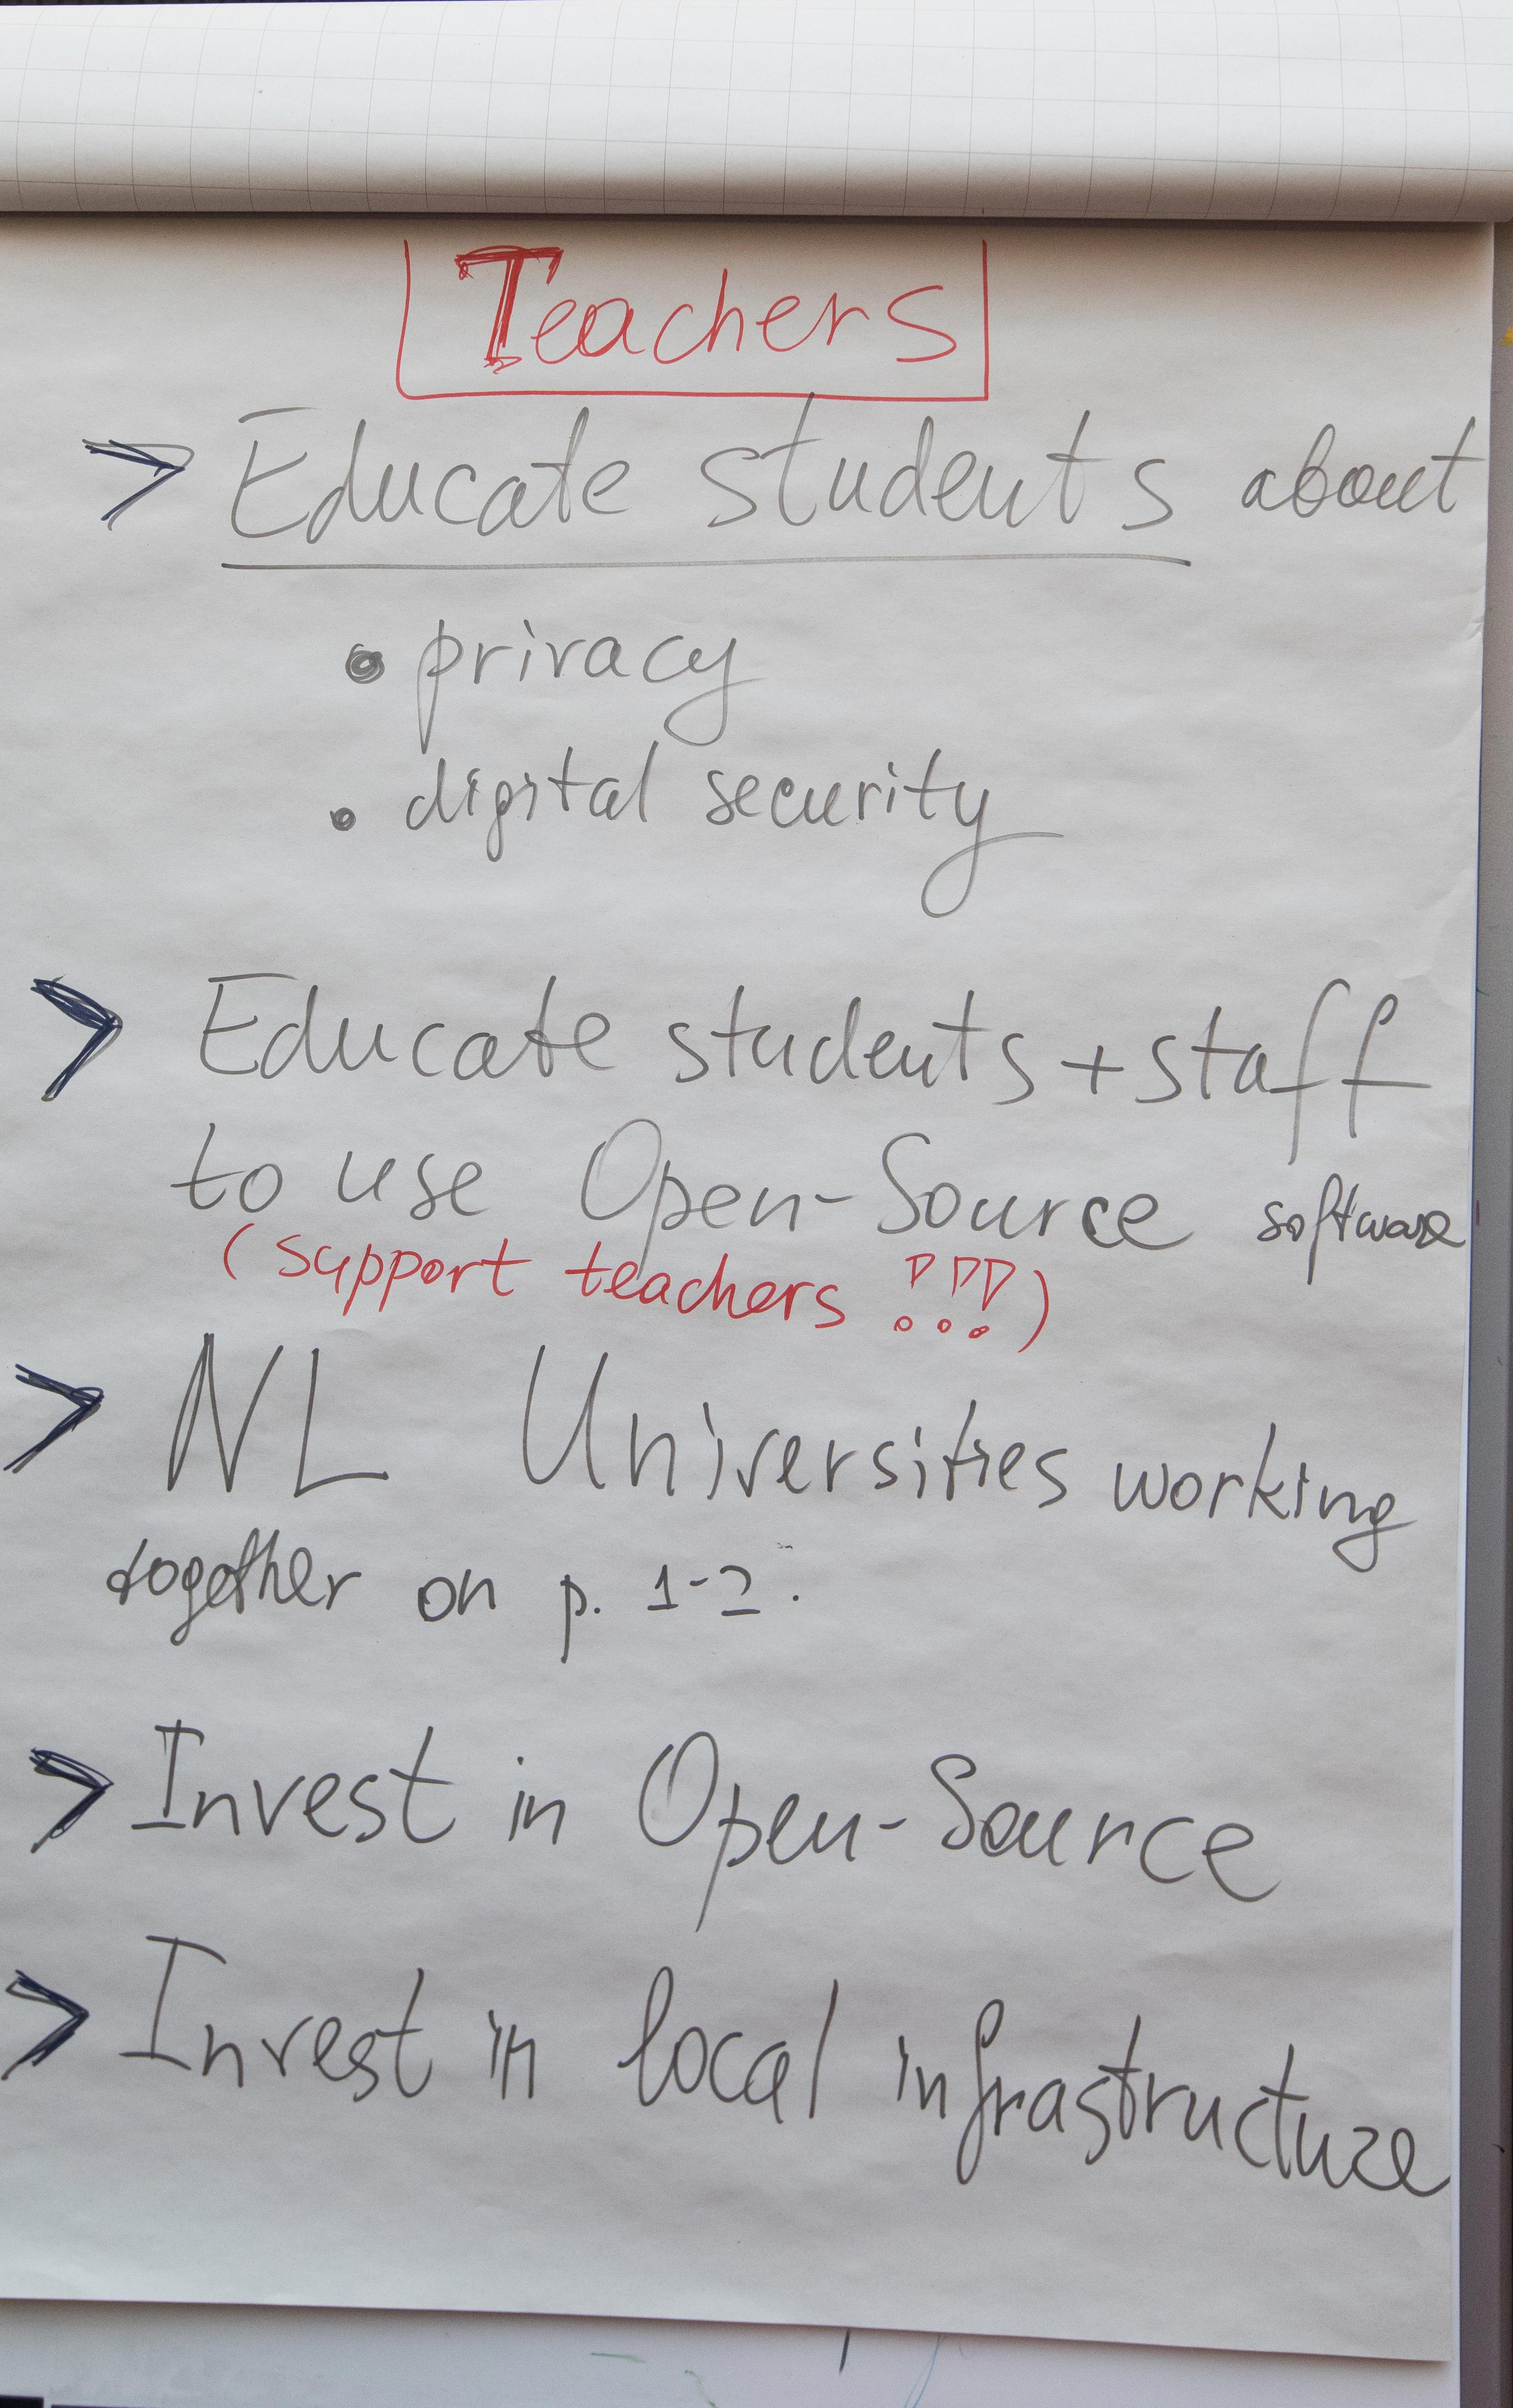 Teachers
> Educate students about
• privacy
• digital security
> Educate students + staff
to use Open-Source software
(support teachers !!!)
> NL Universities working
together on p. 1-2.
> Invest in Open-Source
> Invest in local infrastructure